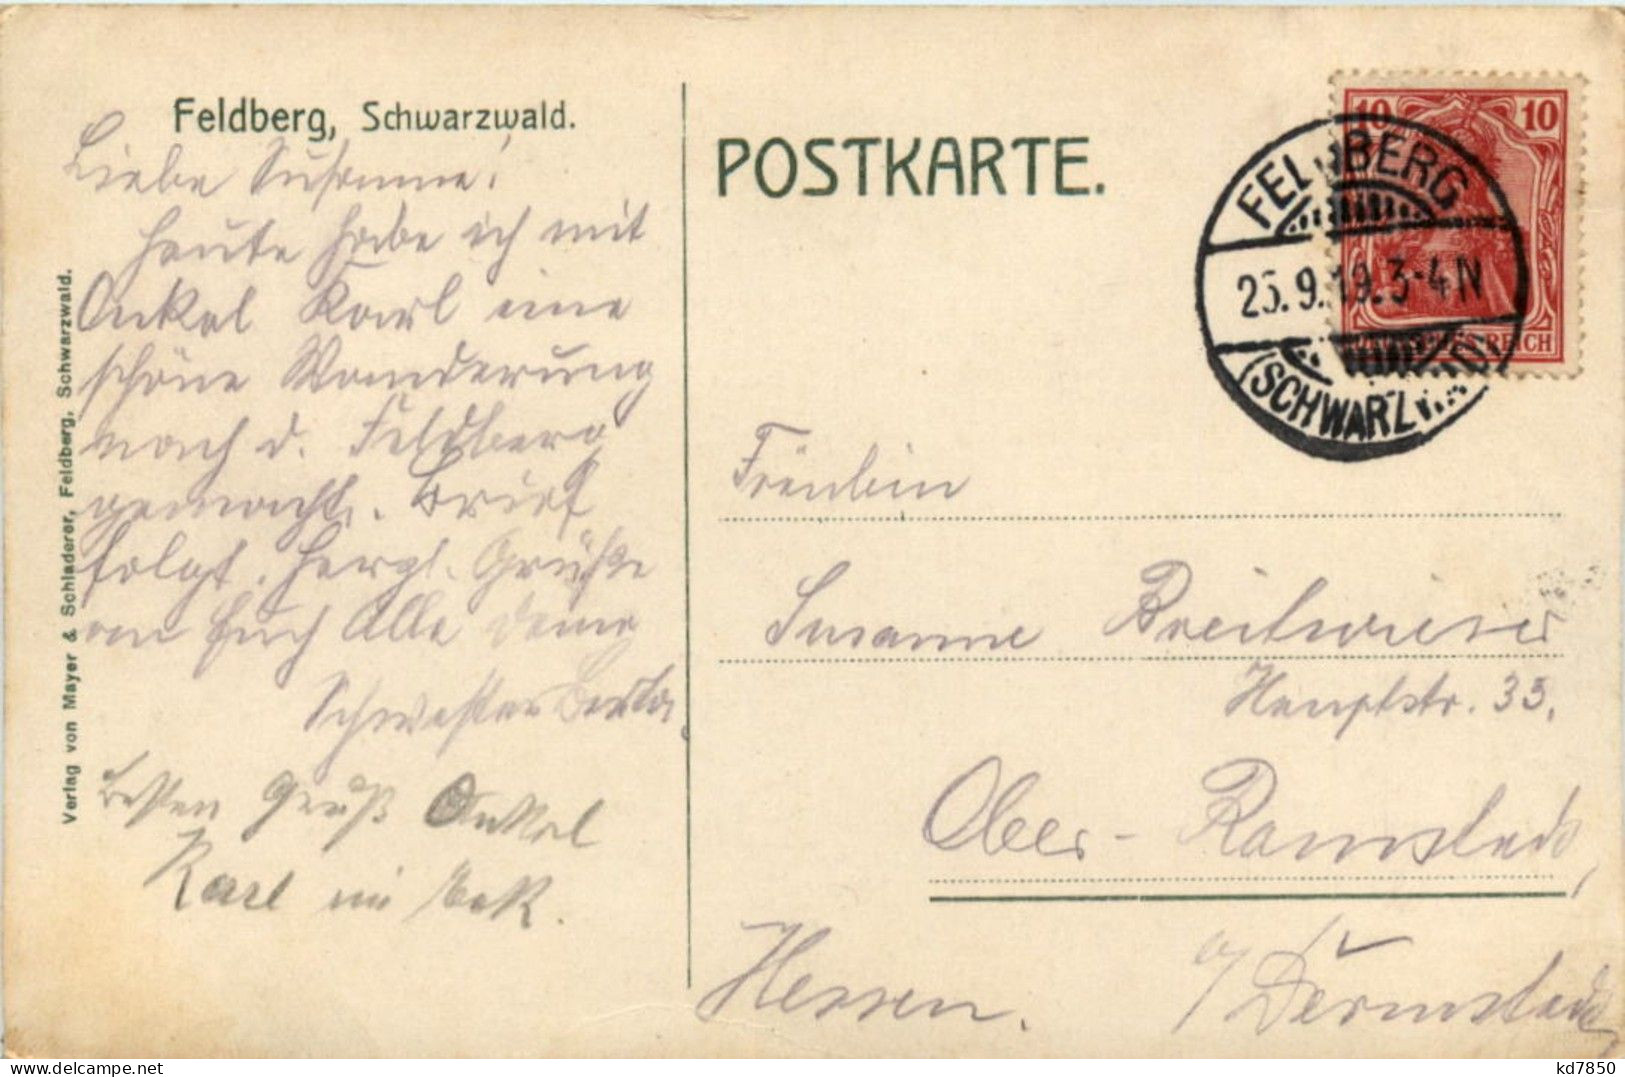 Feldberg, Schwarzwald.
Liebe Susanne!
Heute habe ich mit
Onkel Karl eine
schöne Wanderung
nach d. Feldberg
gemacht. Brief
folgt. Herzl. Grüße
an Euch Alle Deine
Schwester Berta.
Besten Gruß Onkel
Karl
Verlag von Mayer & Schladerer, Feldberg, Schwarzwald.
POSTKARTE.
10 10
DEUTSCHES REICH
FELDBERG
25.9.19.3-4N
(SCHWARZWALD)
Fräulein
Susanne Breitwieser
Hauptstr. 33.
Ober-Ramstadt,
Hessen. b/ Darmstadt
www.delcampe.net
kd7850